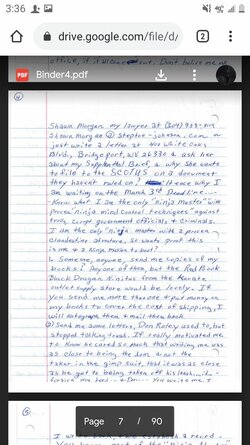 3:36
drive.google.com/file/d/
2
PDF
Binder4.pdf
office, if it's
Don't believe me
Shawn Morgan my lawyer at (304) 933-
Shawn.morgan @ Steptoe-johnson.com or
just write a letter at 400 White Oaks
Blvd., Bridgeport, WV 26330 & ask her
about my Supplemental Brief, & why she wants
to file to the SCOTUS on a document
they havent ruled on? I
am waiting on the March 3rd Deadline.
Know what I be the only "ninja master" with
proven "ninja mind control techniques" against
corrupt government officials & criminals.
I am the only "ninja master with a proven
clandestine adventure, so wants proof this
is me & a ninja master to boot?
1. Someone, anyone, send me copies of my
books! Any one of them, but the Red Book
Black Dragon Ninjutsu from the Karate
outlet supply store would be lovely. If
you send me more than one & put money on
my books to cover the cost of shipping, I
will autograph them & mail them back.
② Send me some letters, Don Roley used to, but
stopped talking trash. It really motivated me
to know he cared so much that writing me was
as close to being the dom & not the
taker in the gimp suit, that it was as close
as he got to being
You write me, I
Page
7
/
90